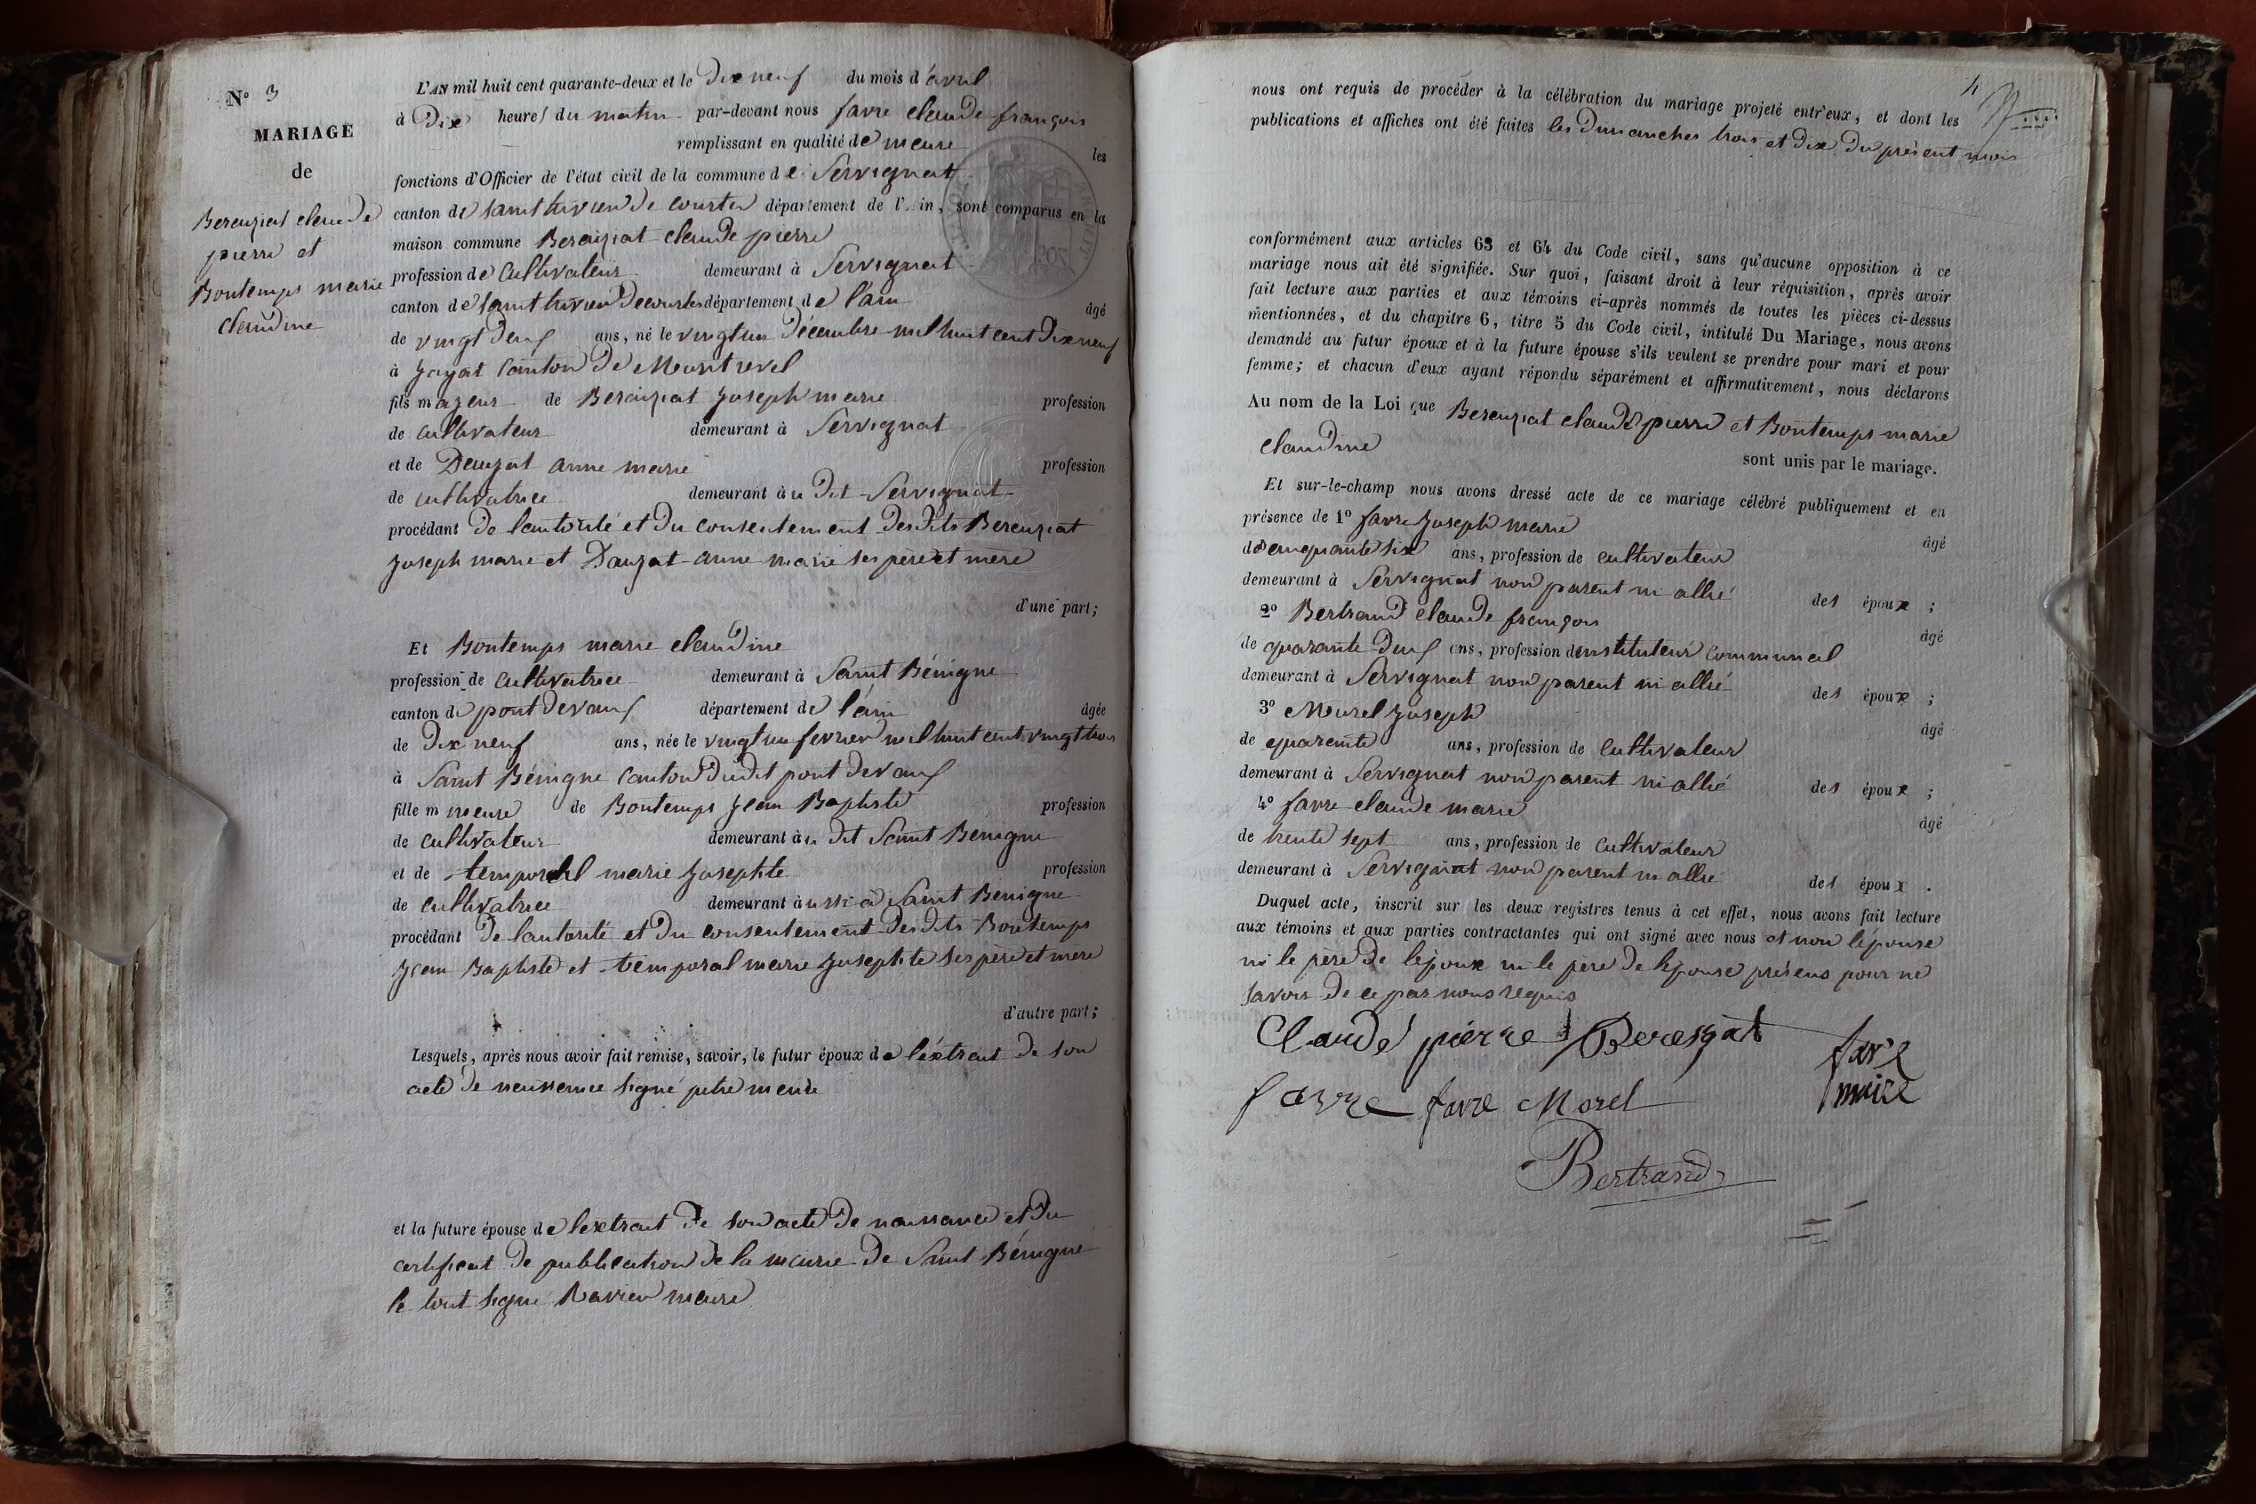 N° 3
MARIAGE
de
Bereyziat claude
pierre et
Bontemps marie
claudine
L'AN mil huit cent quarante-deux et le dix neuf du mois d'avril
à Dix heures du matin par-devant nous favre claude françois
remplissant en qualité de maire les
fonctions d'Officier de l'état civil de la commune de Servignat
canton de saint trivier de courtes département de l'Ain, sont comparus en la
maison commune Bereyziat claude pierre
profession de cultivateur demeurant à Servignat
canton de saint trivier de courtes département de l'ain âgé
de vingt deux ans, né le vingt un décembre mil huit cent dix neuf
à Jayat canton de Montrevel
fils majeur de Bereyziat Joseph marie profession
de cultivateur demeurant à Servignat
et de Dauzat anne marie profession
de cultivatrice demeurant au dit Servignat
procédant de l'autorité et du consentement des dits Bereyziat
Joseph marie et Dauzat anne marie ses père et mère
d'une part;
Et Bontemps marie claudine
profession de cultivatrice demeurant à Saint Bénigne
canton de pont devaux département de l'ain âgée
de dix neuf ans, née le vingt un fevrier mil huit cent vingt trois
à Saint Bénigne canton dudit pont devaux
fille mineure de Bontemps Jean Baptiste profession
de cultivateur demeurant au dit Saint Bénigne
et de temporal marie Josephte profession
de cultivatrice demeurant aussi à Saint Benigne
procédant de l'autorité et du consentement des dits Bontemps
Jean Baptiste et temporal marie Josephte ses père et mère
d'autre part;
Lesquels, après nous avoir fait remise, savoir, le futur époux de l'extrait de son
acte de naissance signé maire
et la future épouse de l'extrait de son acte de naissance et du
certificat de publication de la mairie de Saint Bénigne
le tout signé Ravier maire
4
nous ont requis de procéder à la célébration du mariage projeté entr'eux, et dont les
publications et affiches ont été faites les Dimanches trois et dix du présent mois
conformément aux articles 63 et 64 du Code civil, sans qu'aucune opposition à ce
mariage nous ait été signifiée. Sur quoi, faisant droit à leur réquisition, après avoir
fait lecture aux parties et aux témoins ci-après nommés de toutes les pièces ci-dessus
mentionnées, et du chapitre 6, titre 5 du Code civil, intitulé Du Mariage, nous avons
demandé au futur époux et à la future épouse s'ils veulent se prendre pour mari et pour
femme; et chacun d'eux ayant répondu séparément et affirmativement, nous déclarons
Au nom de la Loi que Bereyziat claude pierre et Bontemps marie
claudine
sont unis par le mariage.
Et sur-le-champ nous avons dressé acte de ce mariage célébré publiquement et en
présence de 1° favre Joseph marie âgé
de cinquante six ans, profession de cultivateur
demeurant à Servignat non parent ni allié des époux;
2° Bertrand claude françois âgé
de quarante deux ans, profession d'instituteur communal
demeurant à Servignat non parent ni allié des époux;
3° Morel Joseph âgé
de quarante ans, profession de cultivateur
demeurant à Servignat non parent ni allié des époux;
4° favre claude marie âgé
de trente sept ans, profession de cultivateur
demeurant à Servignat non parent ni allié des époux.
Duquel acte, inscrit sur les deux registres tenus à cet effet, nous avons fait lecture
aux témoins et aux parties contractantes qui ont signé avec nous et non l'épouse
ni le père de l'époux ni le père de l'épouse présens pour ne
savoir de ce par nous requis
Claude pierre Beresyat
favre
maire
favre favre Morel
Bertrand